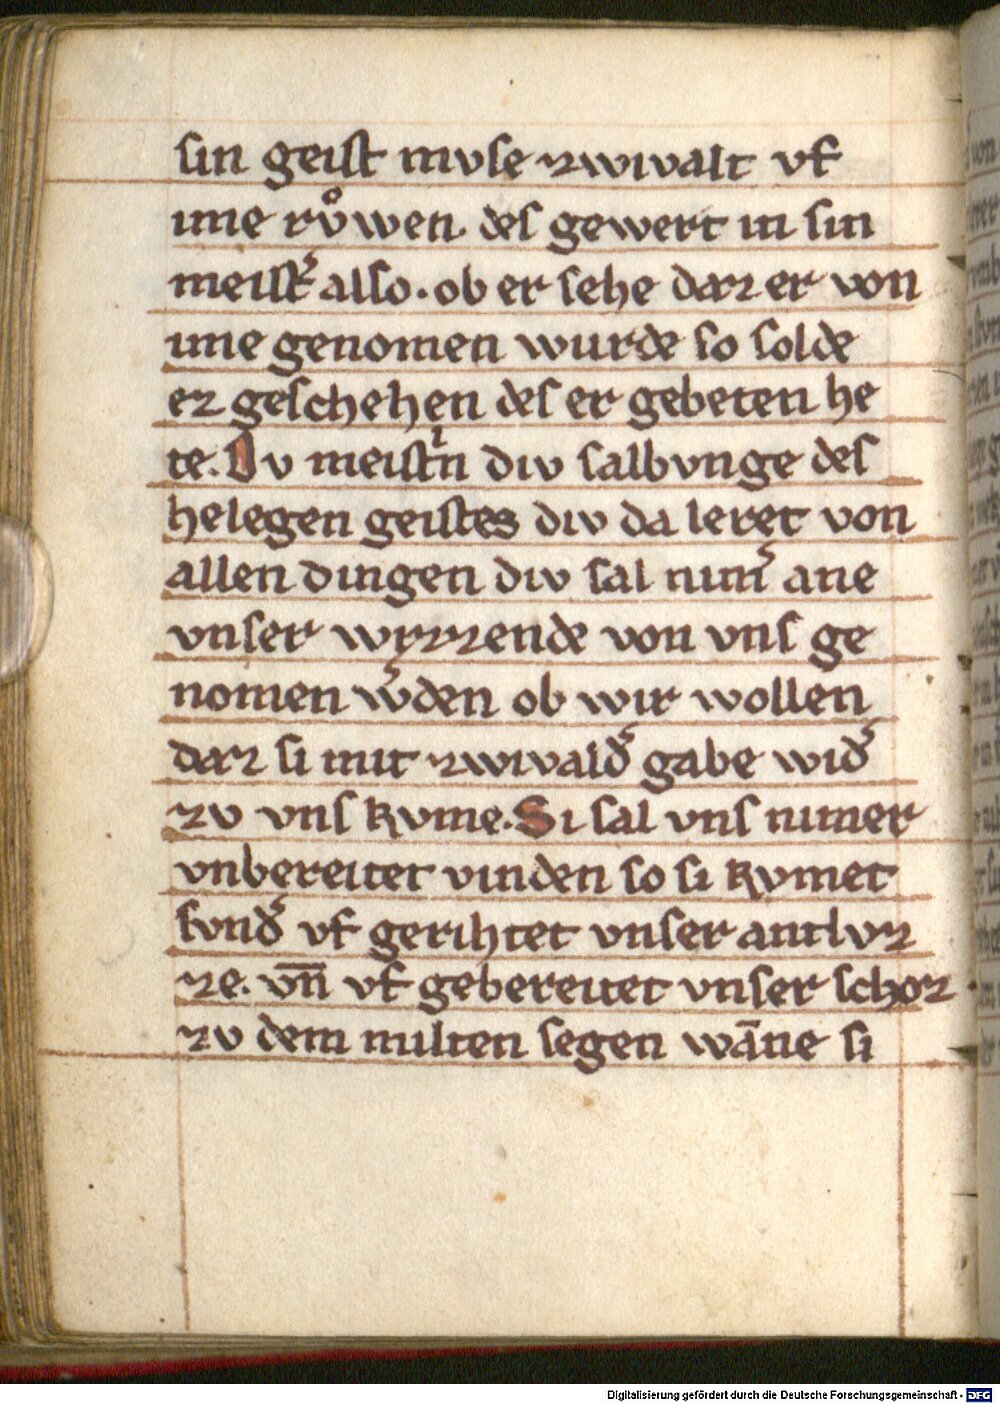 sin geist mvse zwivalt vf
ime rvͦwen. des gewert in sin
meistˀ also. ob er sehe daz er von
ime genomen wurde so solde
ez geschehen des er gebeten he
te. Dv meistˀn div salbvnge des
helegen geistes div da leret von
allen dingen div sal nimˀ ane
vnser wizzende von vns ge
nomen wˀden ob wir wollen
daz si mit zwivaldˀ gabe widˀ
zv vns kvme. Si sal vns nimer
vnbereitet vinden so si kvmet
svndˀ vf gerihtet vnser antlvz
ze. vn̄ vf gebereitet vnser schoz
zv dem milten segen wāne si
Digitalisierung gefördert durch die Deutsche Forschungsgemeinschaft - DFG